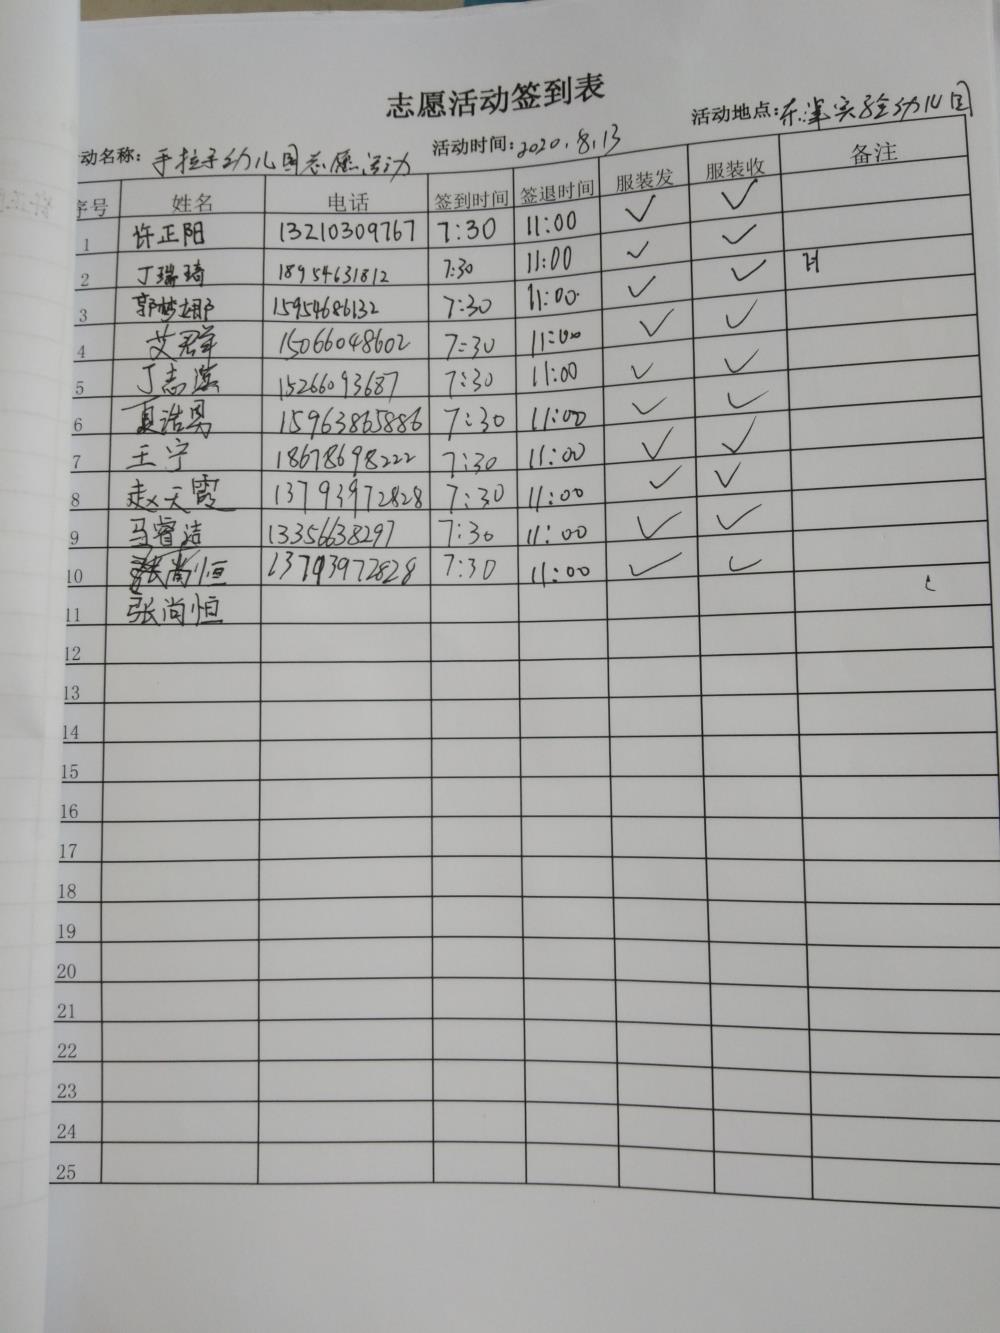 志愿活动签到表
动名称: 手拉手幼儿园志愿活动 活动时间: 2020.8.13 活动地点: 实验幼儿园
序号 姓名 电话 签到时间 签退时间 服装发 服装收 备注
1 许正阳 13210309767 7:30 11:00 ✓ ✓
2 丁瑞琦 18954631812 7:30 11:00 ✓ ✓
3 郭梦娜 15954686132 7:30 11:00 ✓ ✓
4 艾群 15066048602 7:30 11:00 ✓ ✓
5 丁志滨 15266093687 7:30 11:00 ✓ ✓
6 夏浩勇 15963865886 7:30 11:00 ✓ ✓
7 王宁 18678698222 7:30 11:00 ✓ ✓
8 赵天霞 13793972828 7:30 11:00 ✓ ✓
9 马睿洁 13356638297 7:30 11:00 ✓ ✓
10 张尚恒 13793972828 7:30 11:00 ✓ ✓
11 张尚恒
12
13
14
15
16
17
18
19
20
21
22
23
24
25